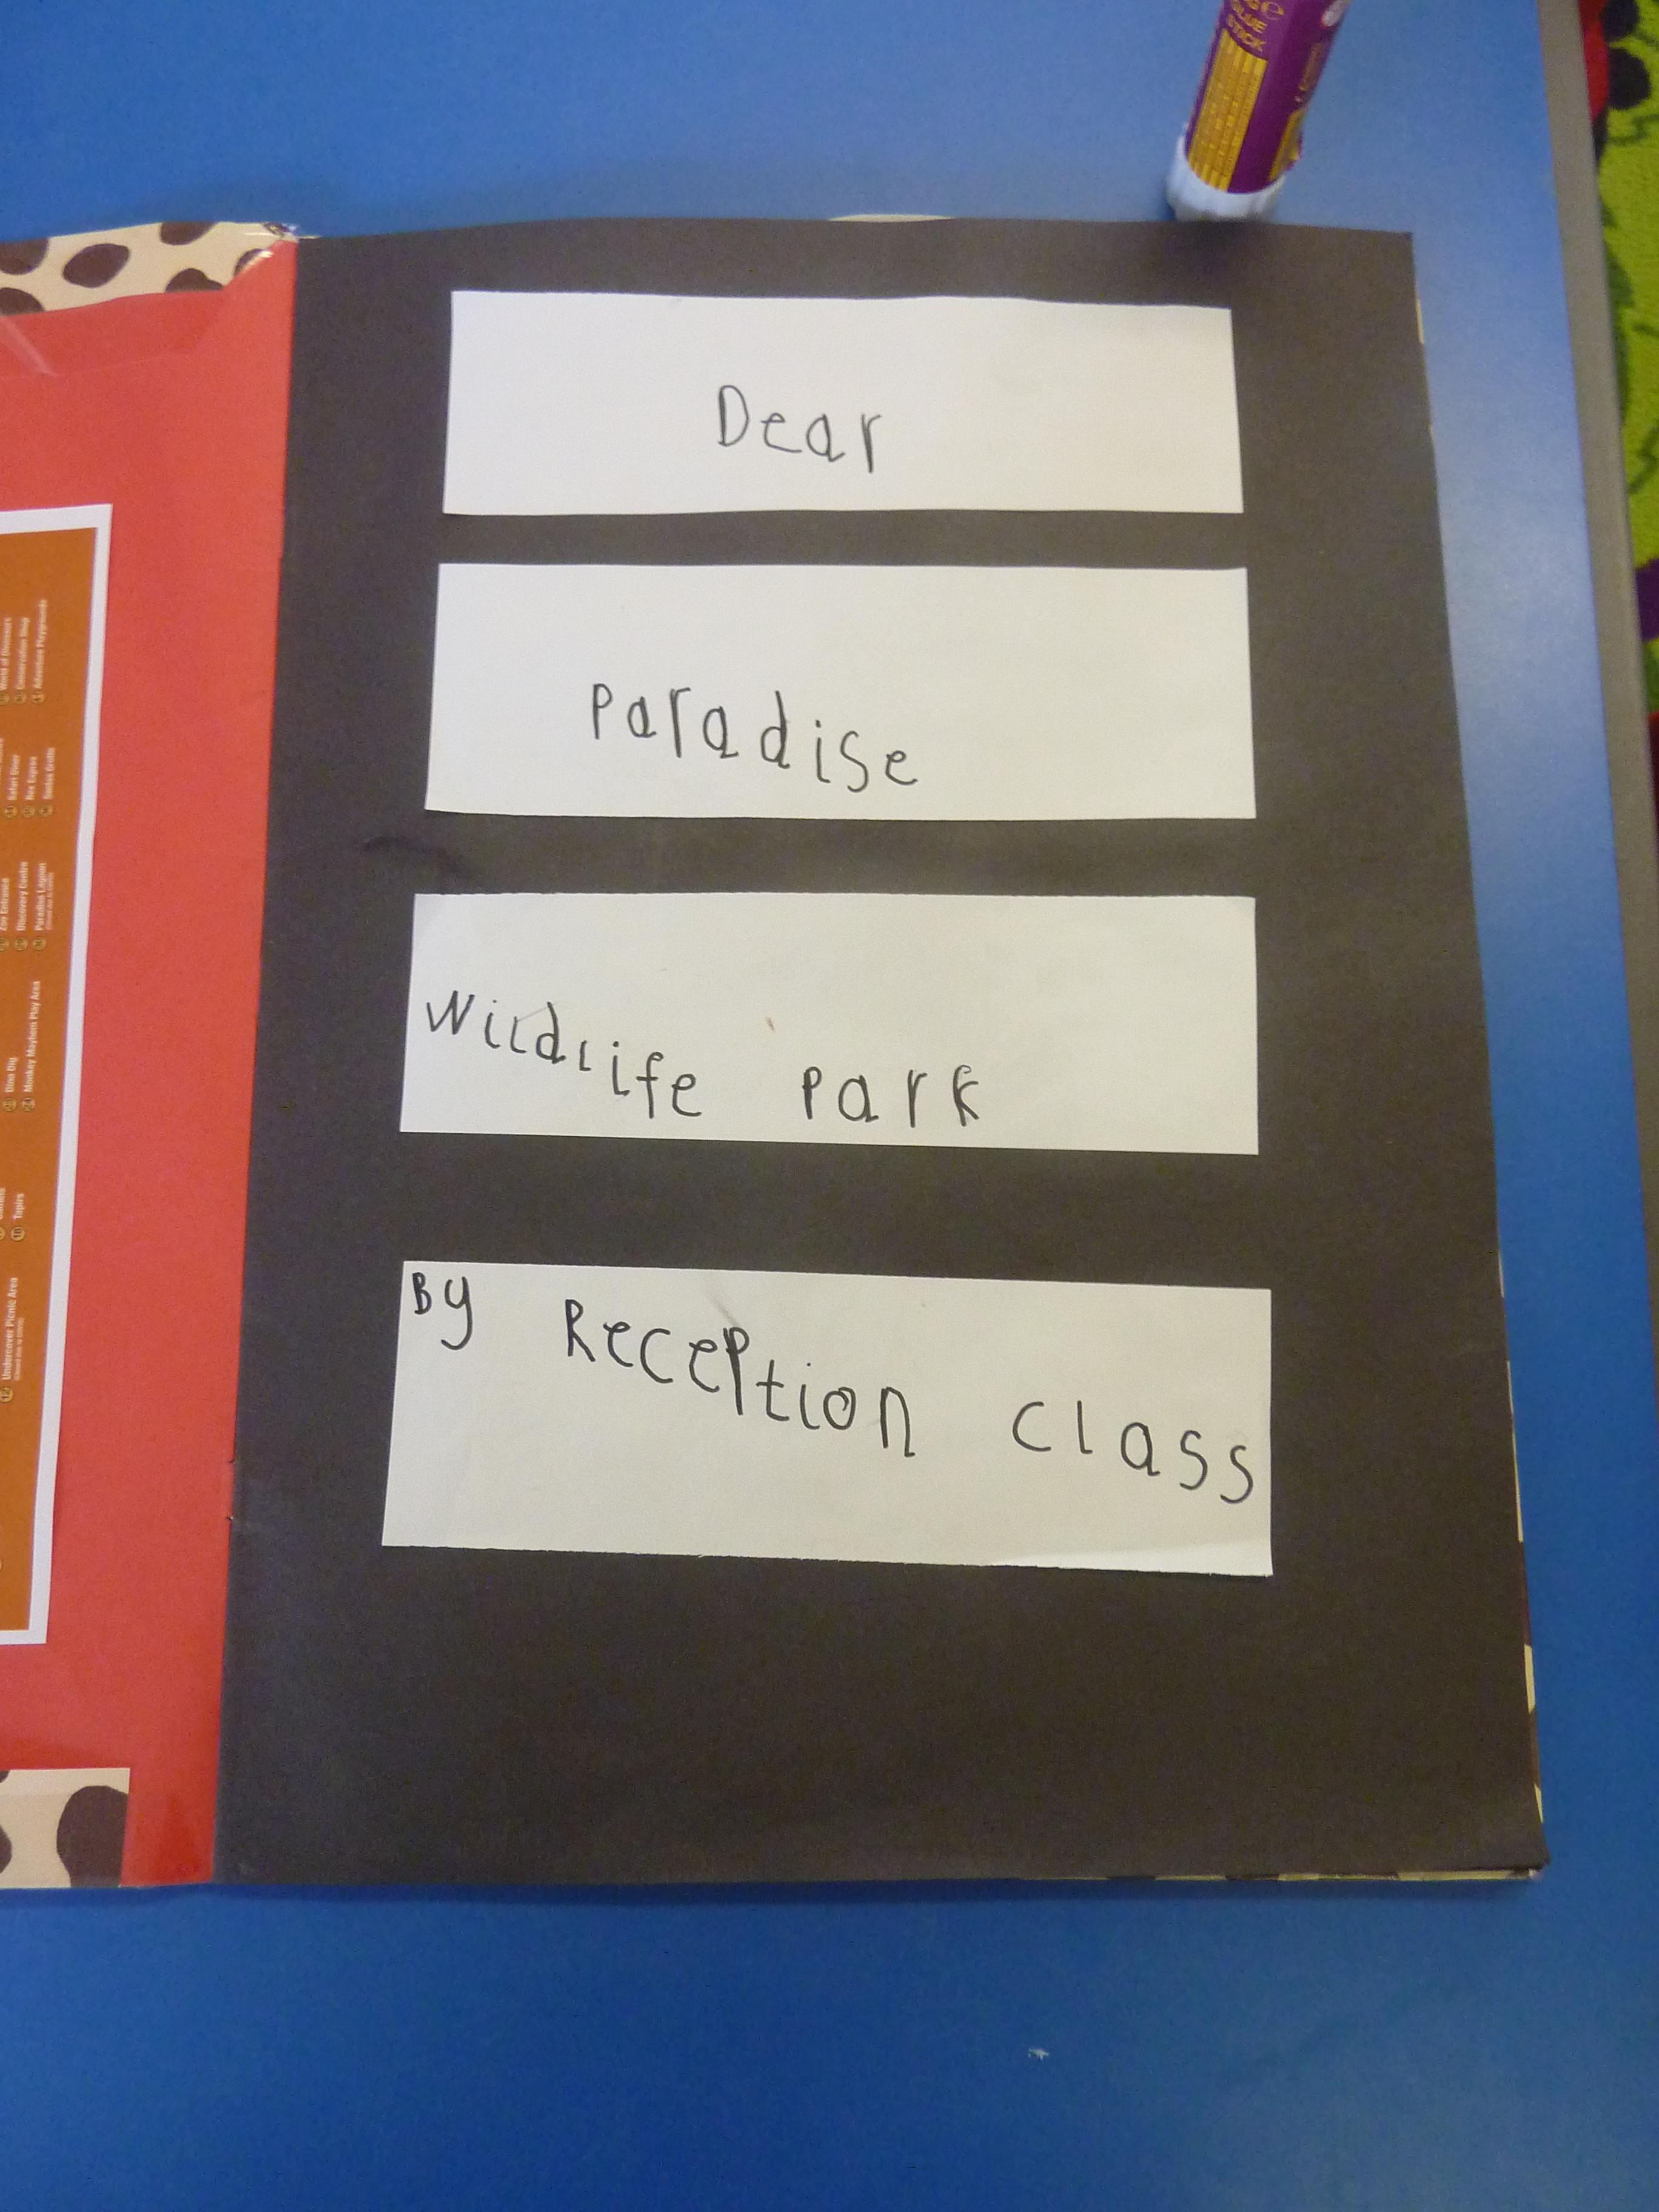 GLUE
STICK
Dear
Paradise
Wildlife Park
By Reception class
World of Dinosaurs
Conservation Shop
Adventure Playgrounds
Safari Diner
Rex Express
Santas Grotto
Zoo Entrance
Discovery Centre
Paradise Lagoon
Dino Dig
Monkey Mayhem Play Area
Tapirs
Undercover Picnic Area